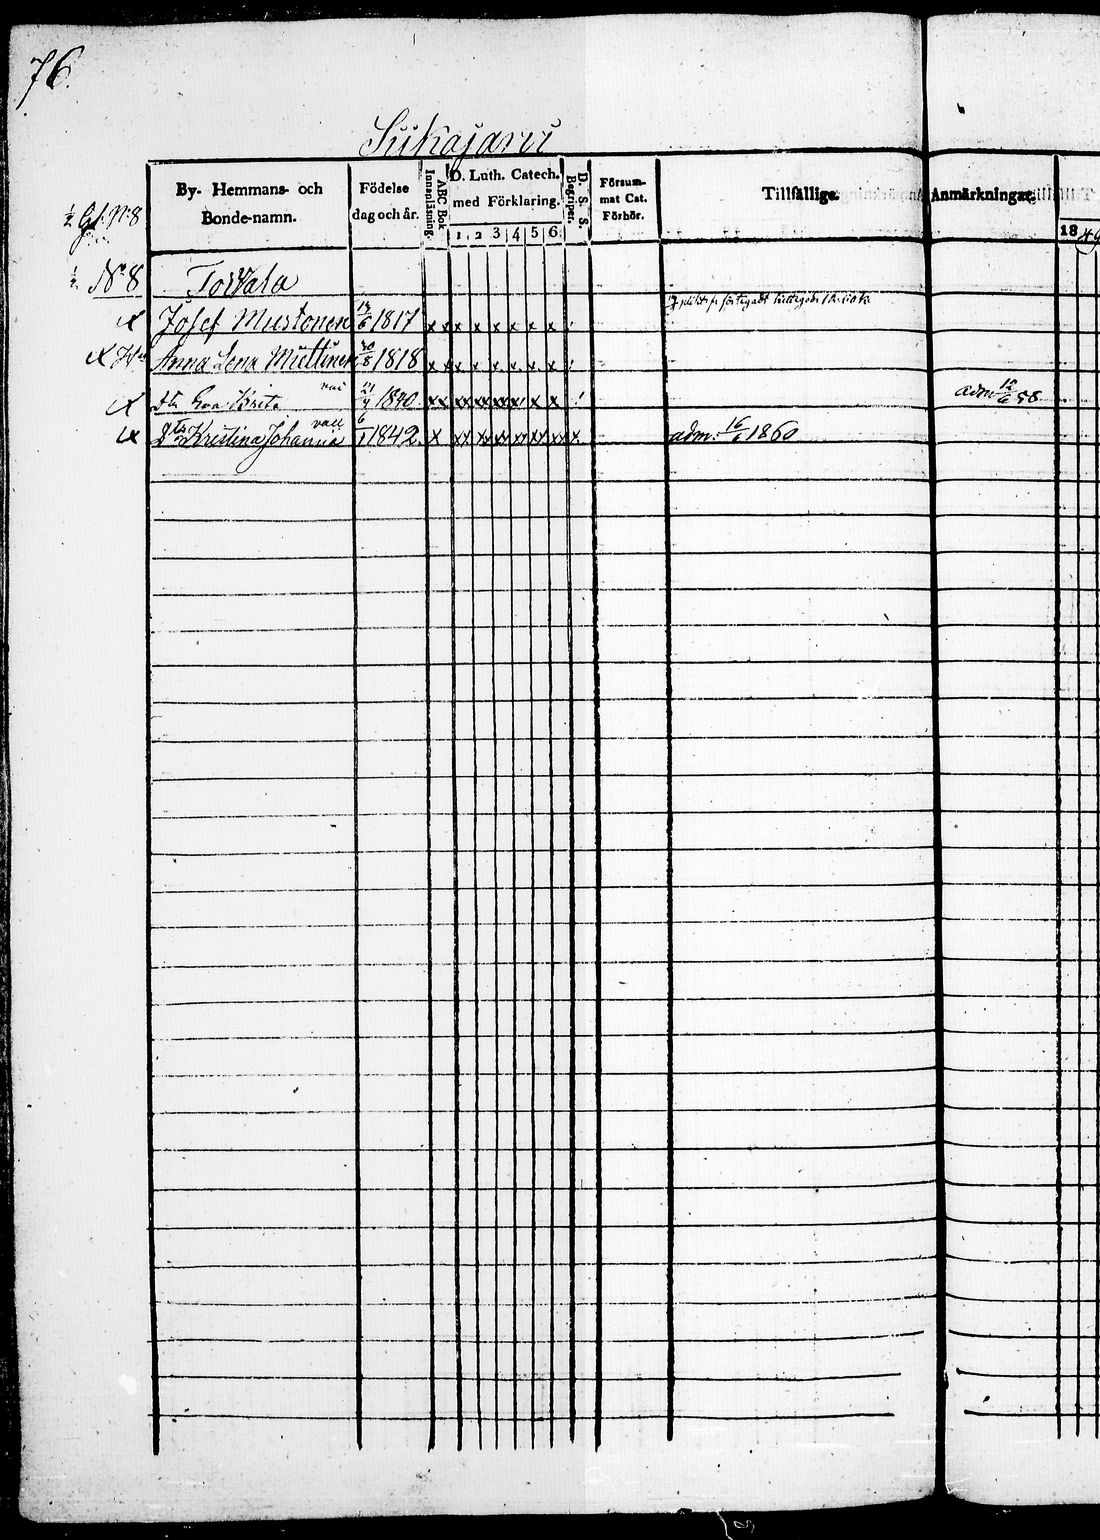 76.
Siikajarvi
By- Hemmans- och Bonde-namn.
Födelse dag och år.
ABC Bok Innanläsning.
D. Luth. Catech. med Förklaring.
1 2 3 4 5 6
D. S. S. Begriper.
Försummat Cat. Förhör.
Tillfällige
Anmärkningar.
18 49
½ N:8
½ N:8 Torvala
x Josef Mustonen 6 1817 x x x x x x x x
x Anna Lena Miettinen 8 1818 x x x x x x x x
x Dtr Eva Brita vac 4 1840 xx xx xx xxx x x adm. 12/6 58
x Dtr Kristina Johanna vacc 6/1 1842 x xx xx xx xx xx xx x adm: 16/6 1860